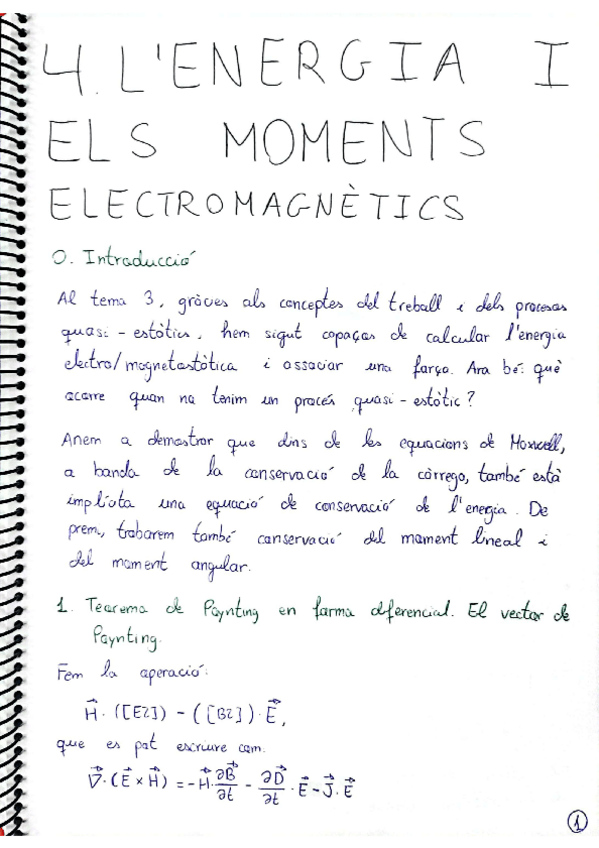 4. L'ENERGIA I
ELS MOMENTS
ELECTROMAGNÈTICS
0. Introducció
Al tema 3, gràcies als conceptes del treball i dels processos
quasi-estàtics, hem sigut capaços de calcular l'energia
electro/magnetostàtica i associar una força. Ara bé: què
ocorre quan no tenim un procés quasi-estàtic?
Anem a demostrar que dins de les equacions de Maxwell,
a banda de la conservació de la càrrega, també està
implícita una equació de conservació de l'energia. De
premi, trobarem també conservació del moment lineal i
del moment angular.
1. Teorema de Poynting en forma diferencial. El vector de
Poynting.
Fem la operació:
H⃗·([E2]) − ([B2])·E⃗,
que es pot escriure com:
∇⃗·(E⃗×H⃗) = −H⃗·∂B⃗/∂t − ∂D⃗/∂t·E⃗ − J⃗·E⃗
1